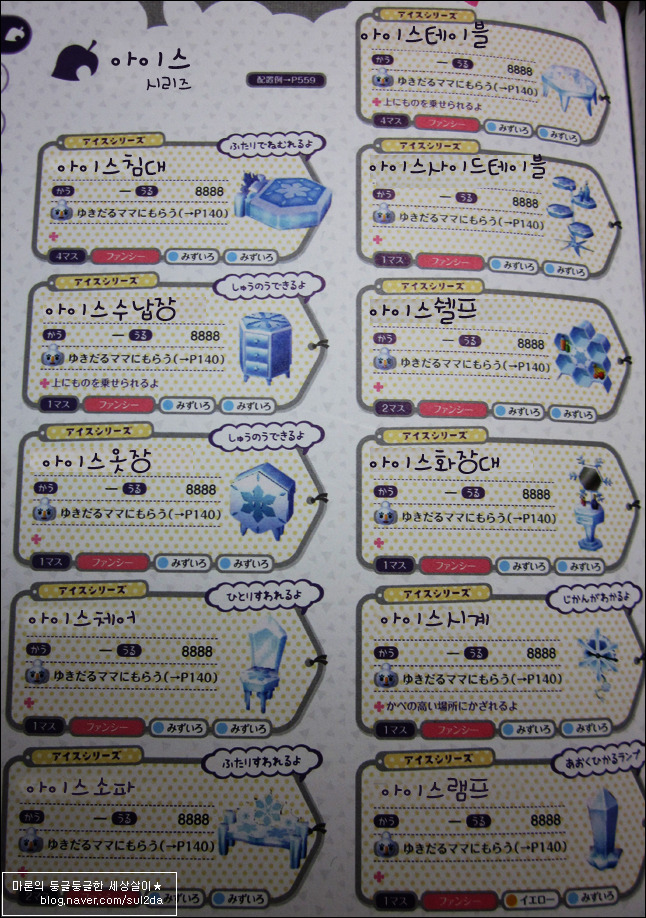 아이스
시리즈
配置例→P559
アイスシリーズ
ふたりでねむれるよ
아이스침대
かう — うる 8888
ゆきだるママにもらう(→P140)
4マス ファンシー みずいろ みずいろ
アイスシリーズ
しゅうのうできるよ
아이스수납장
かう — うる 8888
ゆきだるママにもらう(→P140)
上にものを乗せられるよ
1マス ファンシー みずいろ みずいろ
アイスシリーズ
しゅうのうできるよ
아이스옷장
かう — うる 8888
ゆきだるママにもらう(→P140)
1マス ファンシー みずいろ みずいろ
アイスシリーズ
ひとりすわれるよ
아이스체어
かう — うる 8888
ゆきだるママにもらう(→P140)
1マス ファンシー みずいろ みずいろ
アイスシリーズ
ふたりすわれるよ
아이스소파
かう — うる 8888
ゆきだるママにもらう(→P140)
みずいろ みずいろ
アイスシリーズ
아이스테이블
かう — うる 8888
ゆきだるママにもらう(→P140)
上にものを乗せられるよ
4マス ファンシー みずいろ みずいろ
アイスシリーズ
아이스사이드테이블
かう — うる 8888
ゆきだるママにもらう(→P140)
1マス ファンシー みずいろ みずいろ
アイスシリーズ
아이스쉘프
かう — うる 8888
ゆきだるママにもらう(→P140)
2マス ファンシー みずいろ みずいろ
アイスシリーズ
아이스화장대
かう — うる 8888
ゆきだるママにもらう(→P140)
1マス ファンシー みずいろ みずいろ
アイスシリーズ
じかんがわかるよ
아이스시계
かう — うる 8888
ゆきだるママにもらう(→P140)
かべの高い場所にかざれるよ
1マス ファンシー みずいろ みずいろ
アイスシリーズ
あおくひかるランプ
아이스램프
かう — うる 8888
ゆきだるママにもらう(→P140)
1マス ファンシー イエロー みずいろ
마론의 둥글둥글한 세상살이★
blog.naver.com/sul2da